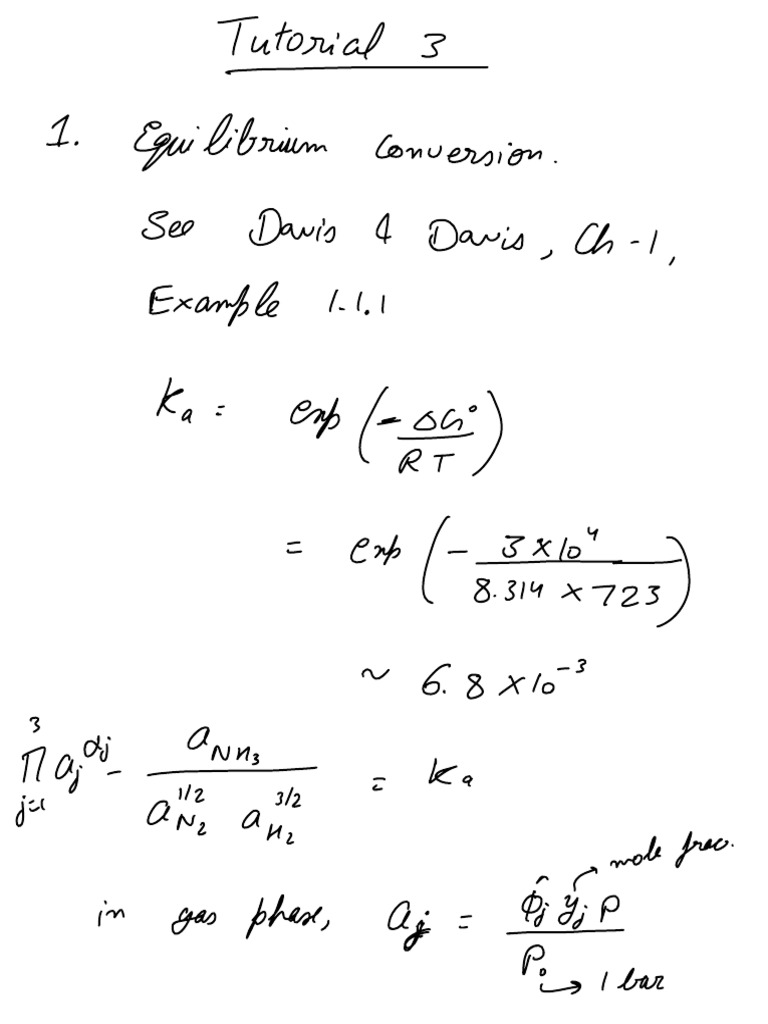 Tutorial 3
1. Equilibrium conversion.
See Davis & Davis, Ch-1,
Example 1.1.1
Ka = exp (- ΔG° / RT)
= exp (- 3×10⁴ / 8.314 × 723)
~ 6.8 × 10⁻³
∏_{j=1}^{3} a_j^{α_j} - a_{NH₃} / a_{N₂}^{1/2} a_{H₂}^{3/2} = Ka
in gas phase, a_j = φ̂_j y_j P / P₀
→ mole frac.
→ 1 bar